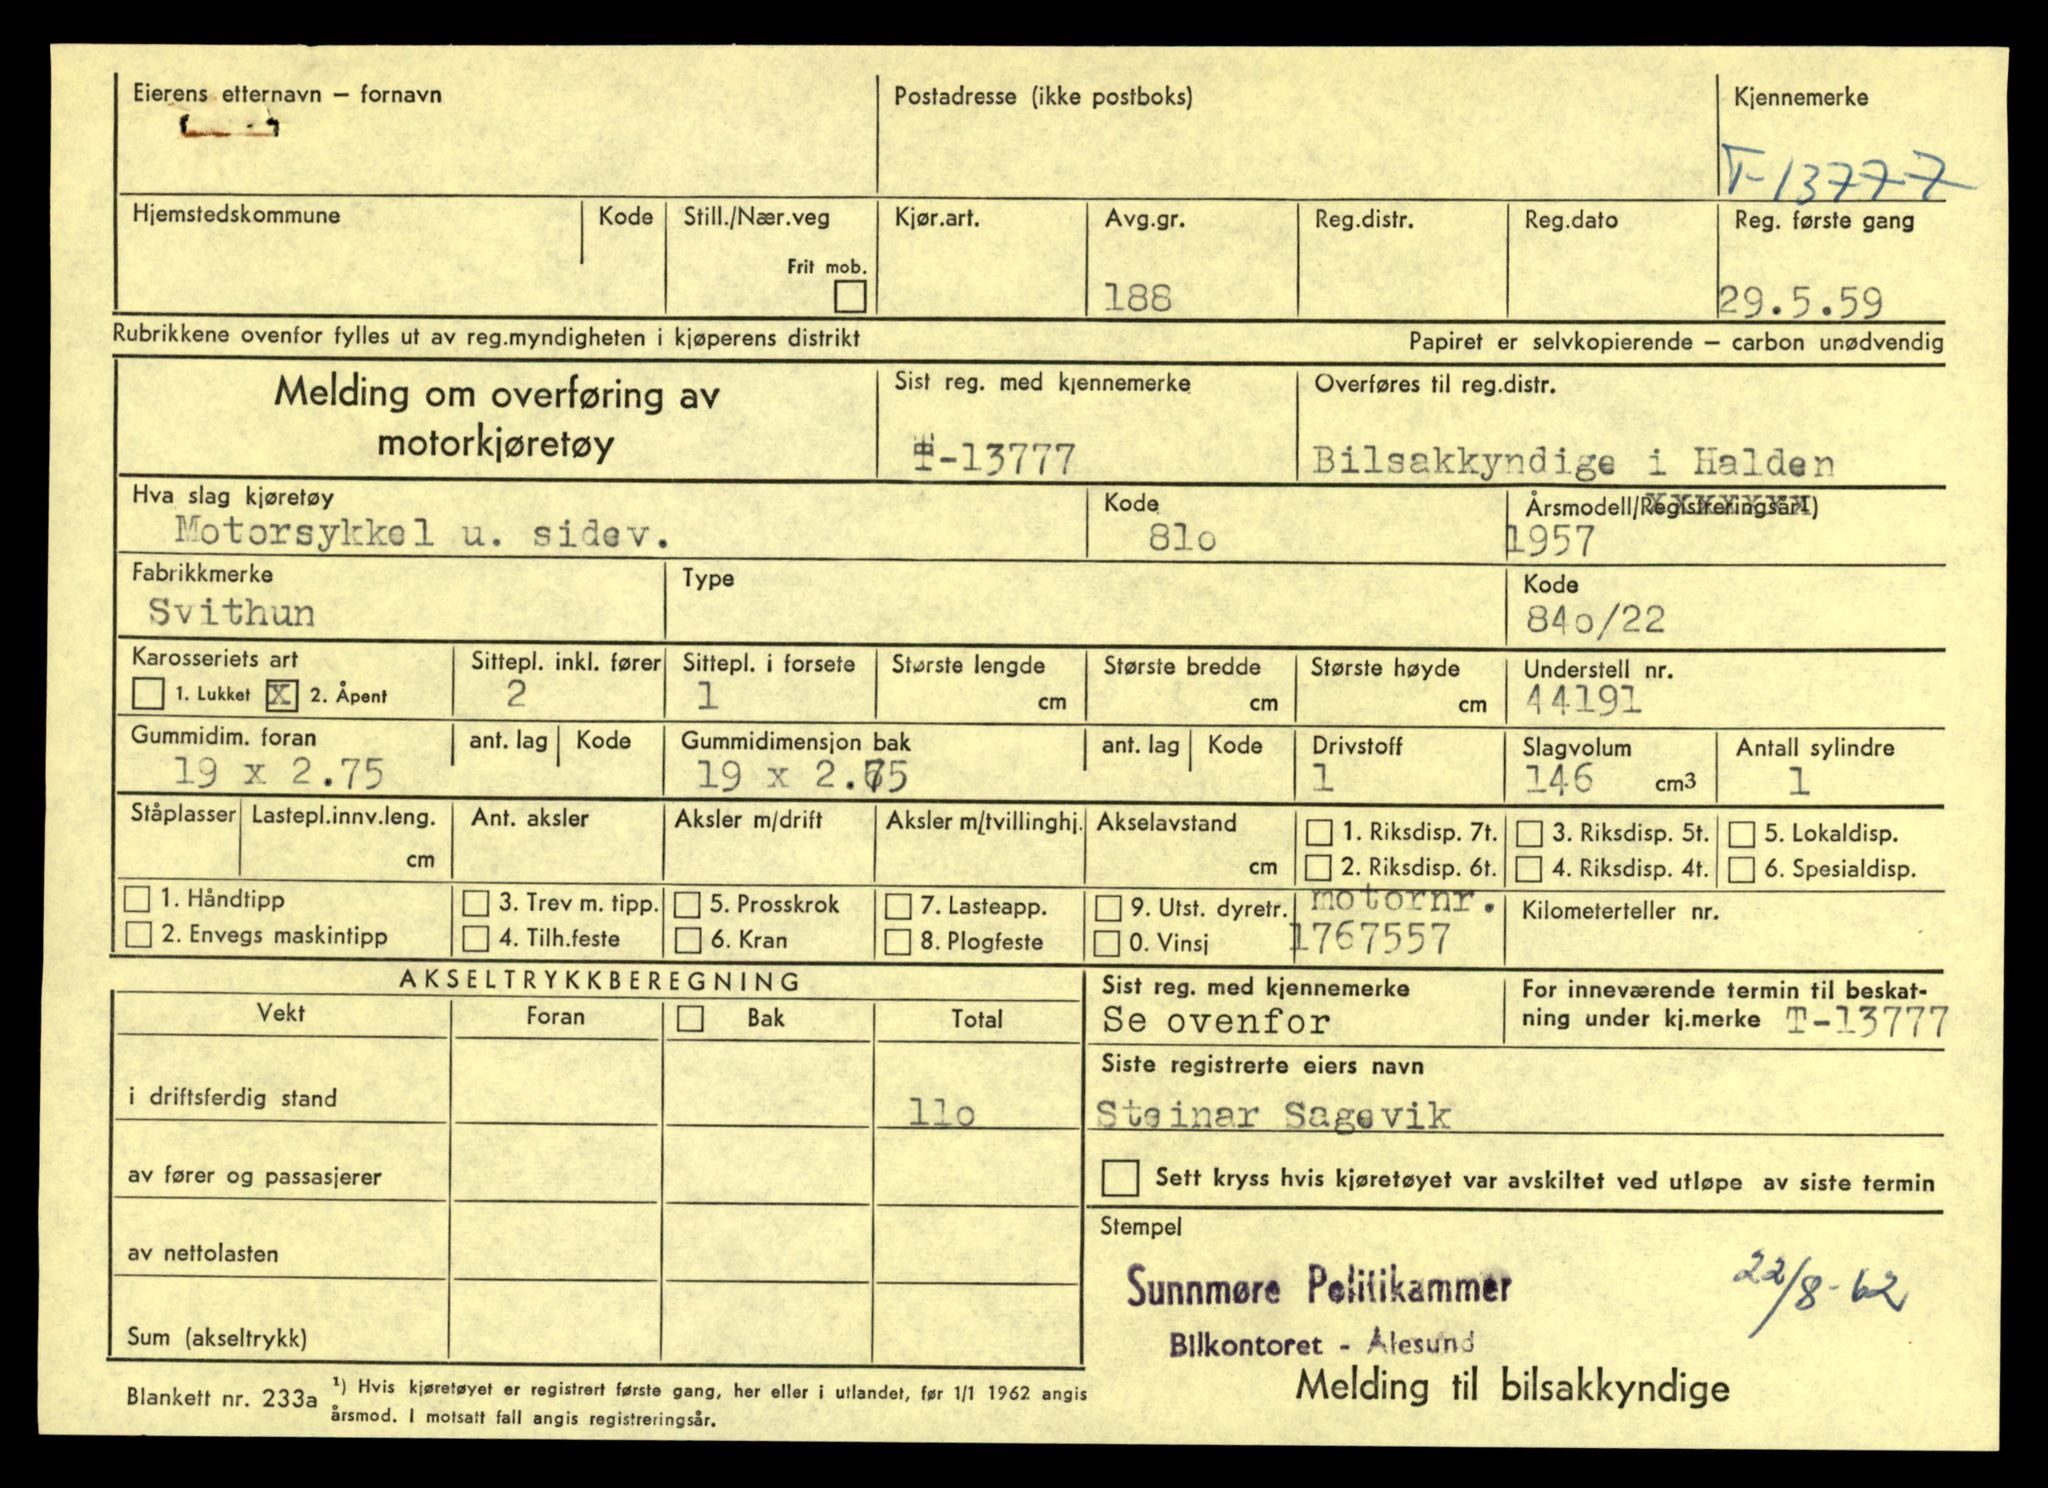 Eierens etternavn – fornavn
Postadresse (ikke postboks)
Kjennemerke
T-13777
Hjemstedskommune
Kode
Still./Nær.veg
Kjør.art.
Avg.gr.
Reg.distr.
Reg.dato
Reg. første gang
Frit mob.
188
29.5.59
Rubrikkene ovenfor fylles ut av reg.myndigheten i kjøperens distrikt
Papiret er selvkopierende – carbon unødvendig
Melding om overføring av
motorkjøretøy
Sist reg. med kjennemerke
T-13777
Overføres til reg.distr.
Bilsakkyndige i Halden
Hva slag kjøretøy
Motorsykkel u. sidev.
Kode
81o
Årsmodell/Registreringsår1)
1957
Fabrikkmerke
Svithun
Type
Kode
84o/22
Karosseriets art
1. Lukket X 2. Åpent
Sittepl. inkl. fører
2
Sittepl. i forsete
1
Største lengde
cm
Største bredde
cm
Største høyde
cm
Understell nr.
44191
Gummidim. foran
19 x 2.75
ant. lag
Kode
Gummidimensjon bak
19 x 2.75
ant. lag
Kode
Drivstoff
1
Slagvolum
146 cm3
Antall sylindre
1
Ståplasser
Lastepl.innv.leng.
cm
Ant. aksler
Aksler m/drift
Aksler m/tvillinghj.
Akselavstand
cm
1. Riksdisp. 7t.
2. Riksdisp. 6t.
3. Riksdisp. 5t.
4. Riksdisp. 4t.
5. Lokaldisp.
6. Spesialdisp.
1. Håndtipp
2. Envegs maskintipp
3. Trev m. tipp.
4. Tilh.feste
5. Prosskrok
6. Kran
7. Lasteapp.
8. Plogfeste
9. Utst. dyretr.
0. Vinsj
motornr.
1767557
Kilometerteller nr.
AKSELTRYKKBEREGNING
Vekt
Foran
Bak
Total
i driftsferdig stand
11o
av fører og passasjerer
av nettolasten
Sum (akseltrykk)
Sist reg. med kjennemerke
Se ovenfor
For inneværende termin til beskat-
ning under kj.merke T-13777
Siste registrerte eiers navn
Steinar Sagevik
Sett kryss hvis kjøretøyet var avskiltet ved utløpe av siste termin
Stempel
Sunnmøre Politikammer
Bilkontoret - Ålesund
22/8-62
Melding til bilsakkyndige
Blankett nr. 233a
1) Hvis kjøretøyet er registrert første gang, her eller i utlandet, før 1/1 1962 angis
årsmod. I motsatt fall angis registreringsår.